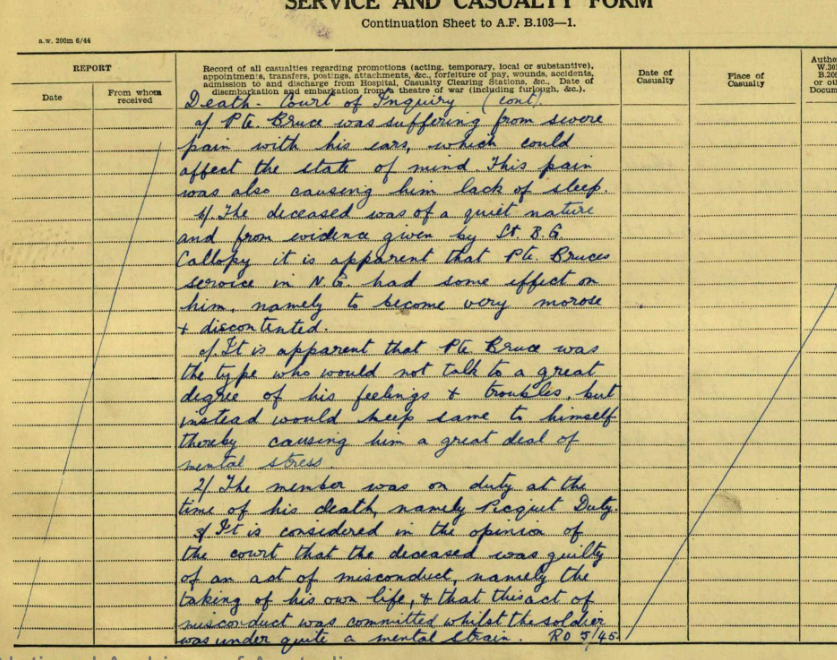 SERVICE AND CASUALTY FORM
Continuation Sheet to A.F. B.103—1.
a.w. 200m 6/44
REPORT
Date
From whom received
Record of all casualties regarding promotions (acting, temporary, local or substantive),
appointments, transfers, postings, attachments, &c., forfeiture of pay, wounds, accidents,
admission to and discharge from Hospital, Casualty Clearing Stations, &c., Date of
disembarkation and embarkation from a theatre of war (including furlough, &c.).
Date of Casualty
Place of Casualty
Death - Court of Inquiry (cont).
a/. Pte. Bruce was suffering from severe
pain with his ears, which could
affect the state of mind. This pain
was also causing him lack of sleep.
b/. The deceased was of a quiet nature
and from evidence given by Lt. B.G.
Callopy it is apparent that Pte. Bruces
service in N.G. had some effect on
him, namely to become very morose
+ discontented.
c/. It is apparent that Pte Bruce was
the type who would not talk to a great
degree of his feelings + troubles, but
instead would keep same to himself
thereby causing him a great deal of
mental stress.
2/ The member was on duty at the
time of his death, namely Picquet Duty.
3/ It is considered in the opinion of
the court that the deceased was guilty
of an act of misconduct, namely the
taking of his own life, + that this act of
misconduct was committed whilst the soldier
was under quite a mental strain. RO 5/45.